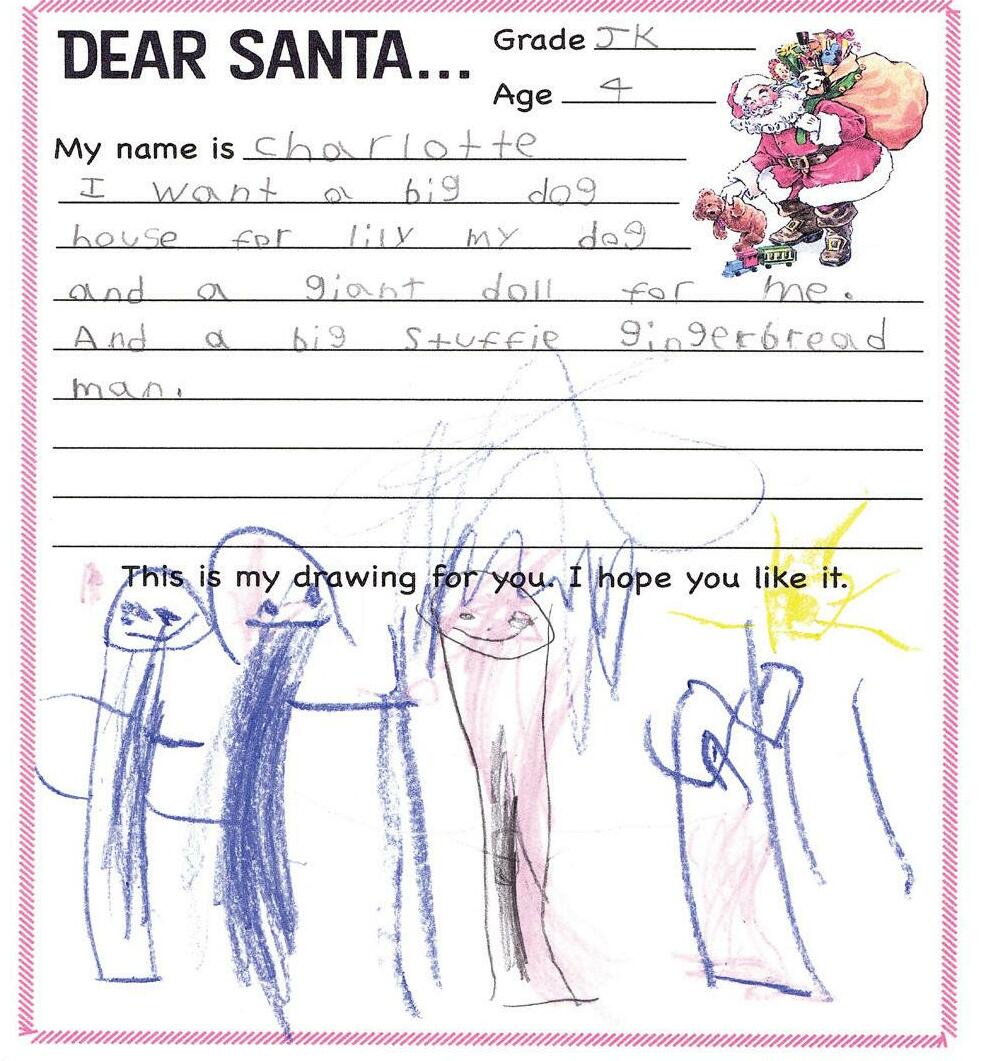 DEAR SANTA...
Grade JK
Age 4
My name is charlotte
I want a big dog
house for lily my dog
and a giant doll for me.
And a big stuffie gingerbread
man.
This is my drawing for you. I hope you like it.